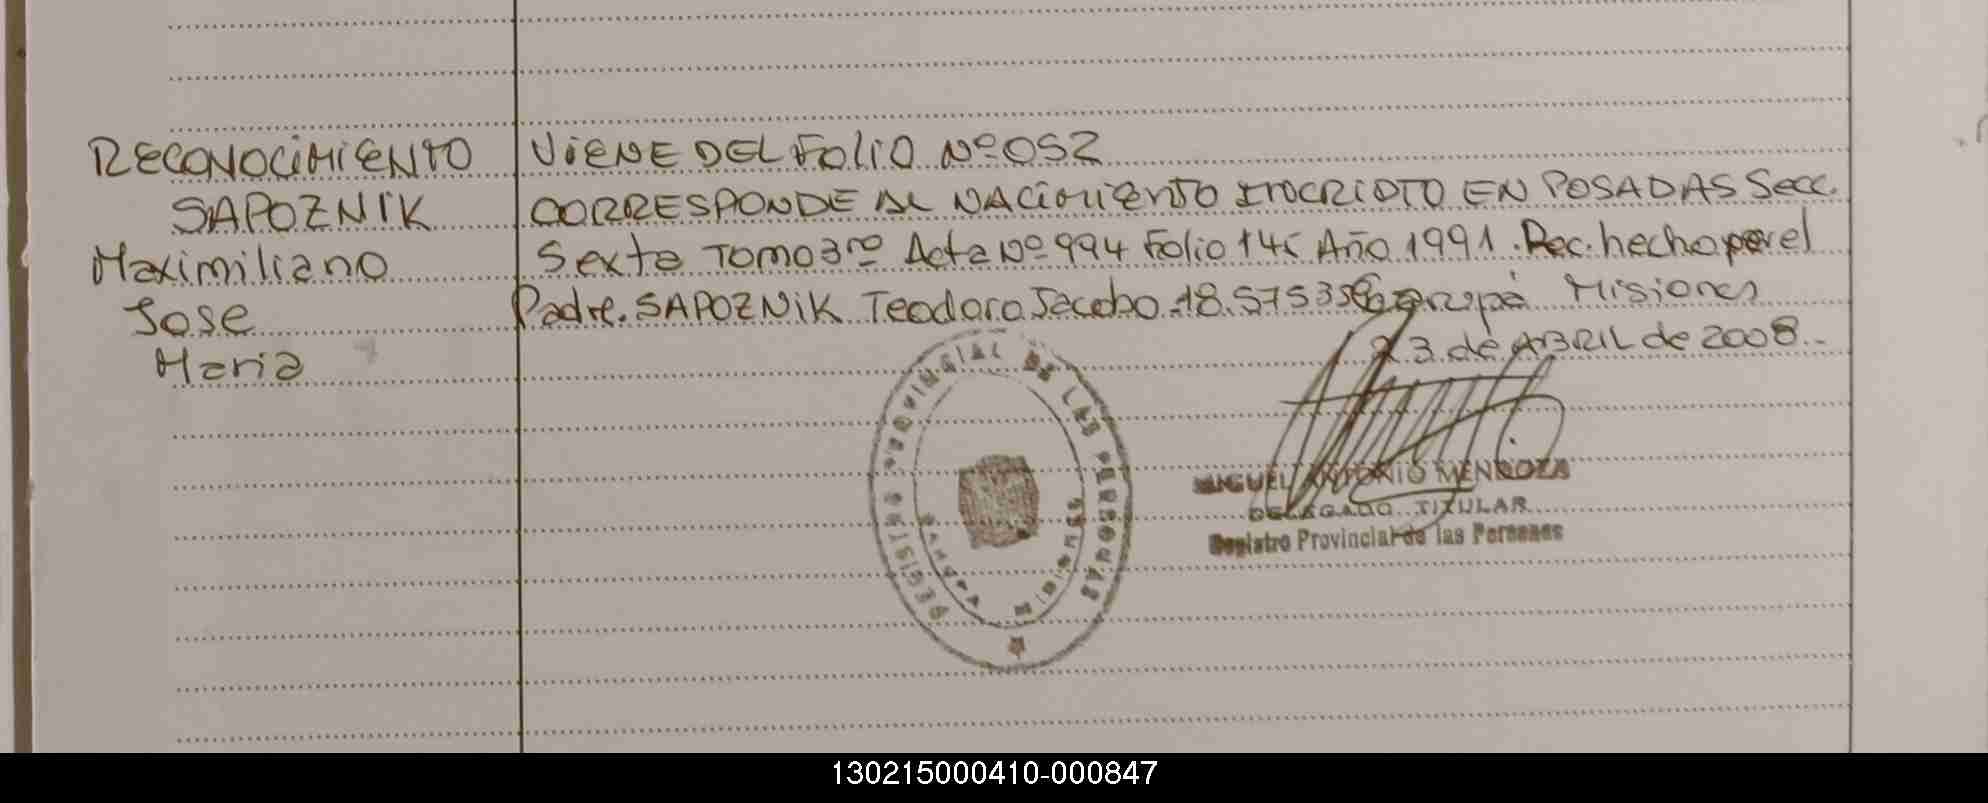 RECONOCIMIENTO
SAPOZNIK
Maximiliano
Jose
Maria
VIENE DEL Folio Nº 052
CORRESPONDE AL NACIMIENTO INSCRIPTO EN POSADAS Secc.
Sexta Tomo 3ro Acta Nº 994 Folio 145 Año 1991. Rec. hecho por el
Padre. SAPOZNIK Teodoro Jacobo. 18.575356 Garupá Misiones
23 de ABRIL de 2008.-
REGISTRO PROVINCIAL DE LAS PERSONAS
GARUPA MISIONES
MIGUEL ANTONIO MENDOZA
DELEGADO TITULAR
Registro Provincial de las Personas
130215000410-000847